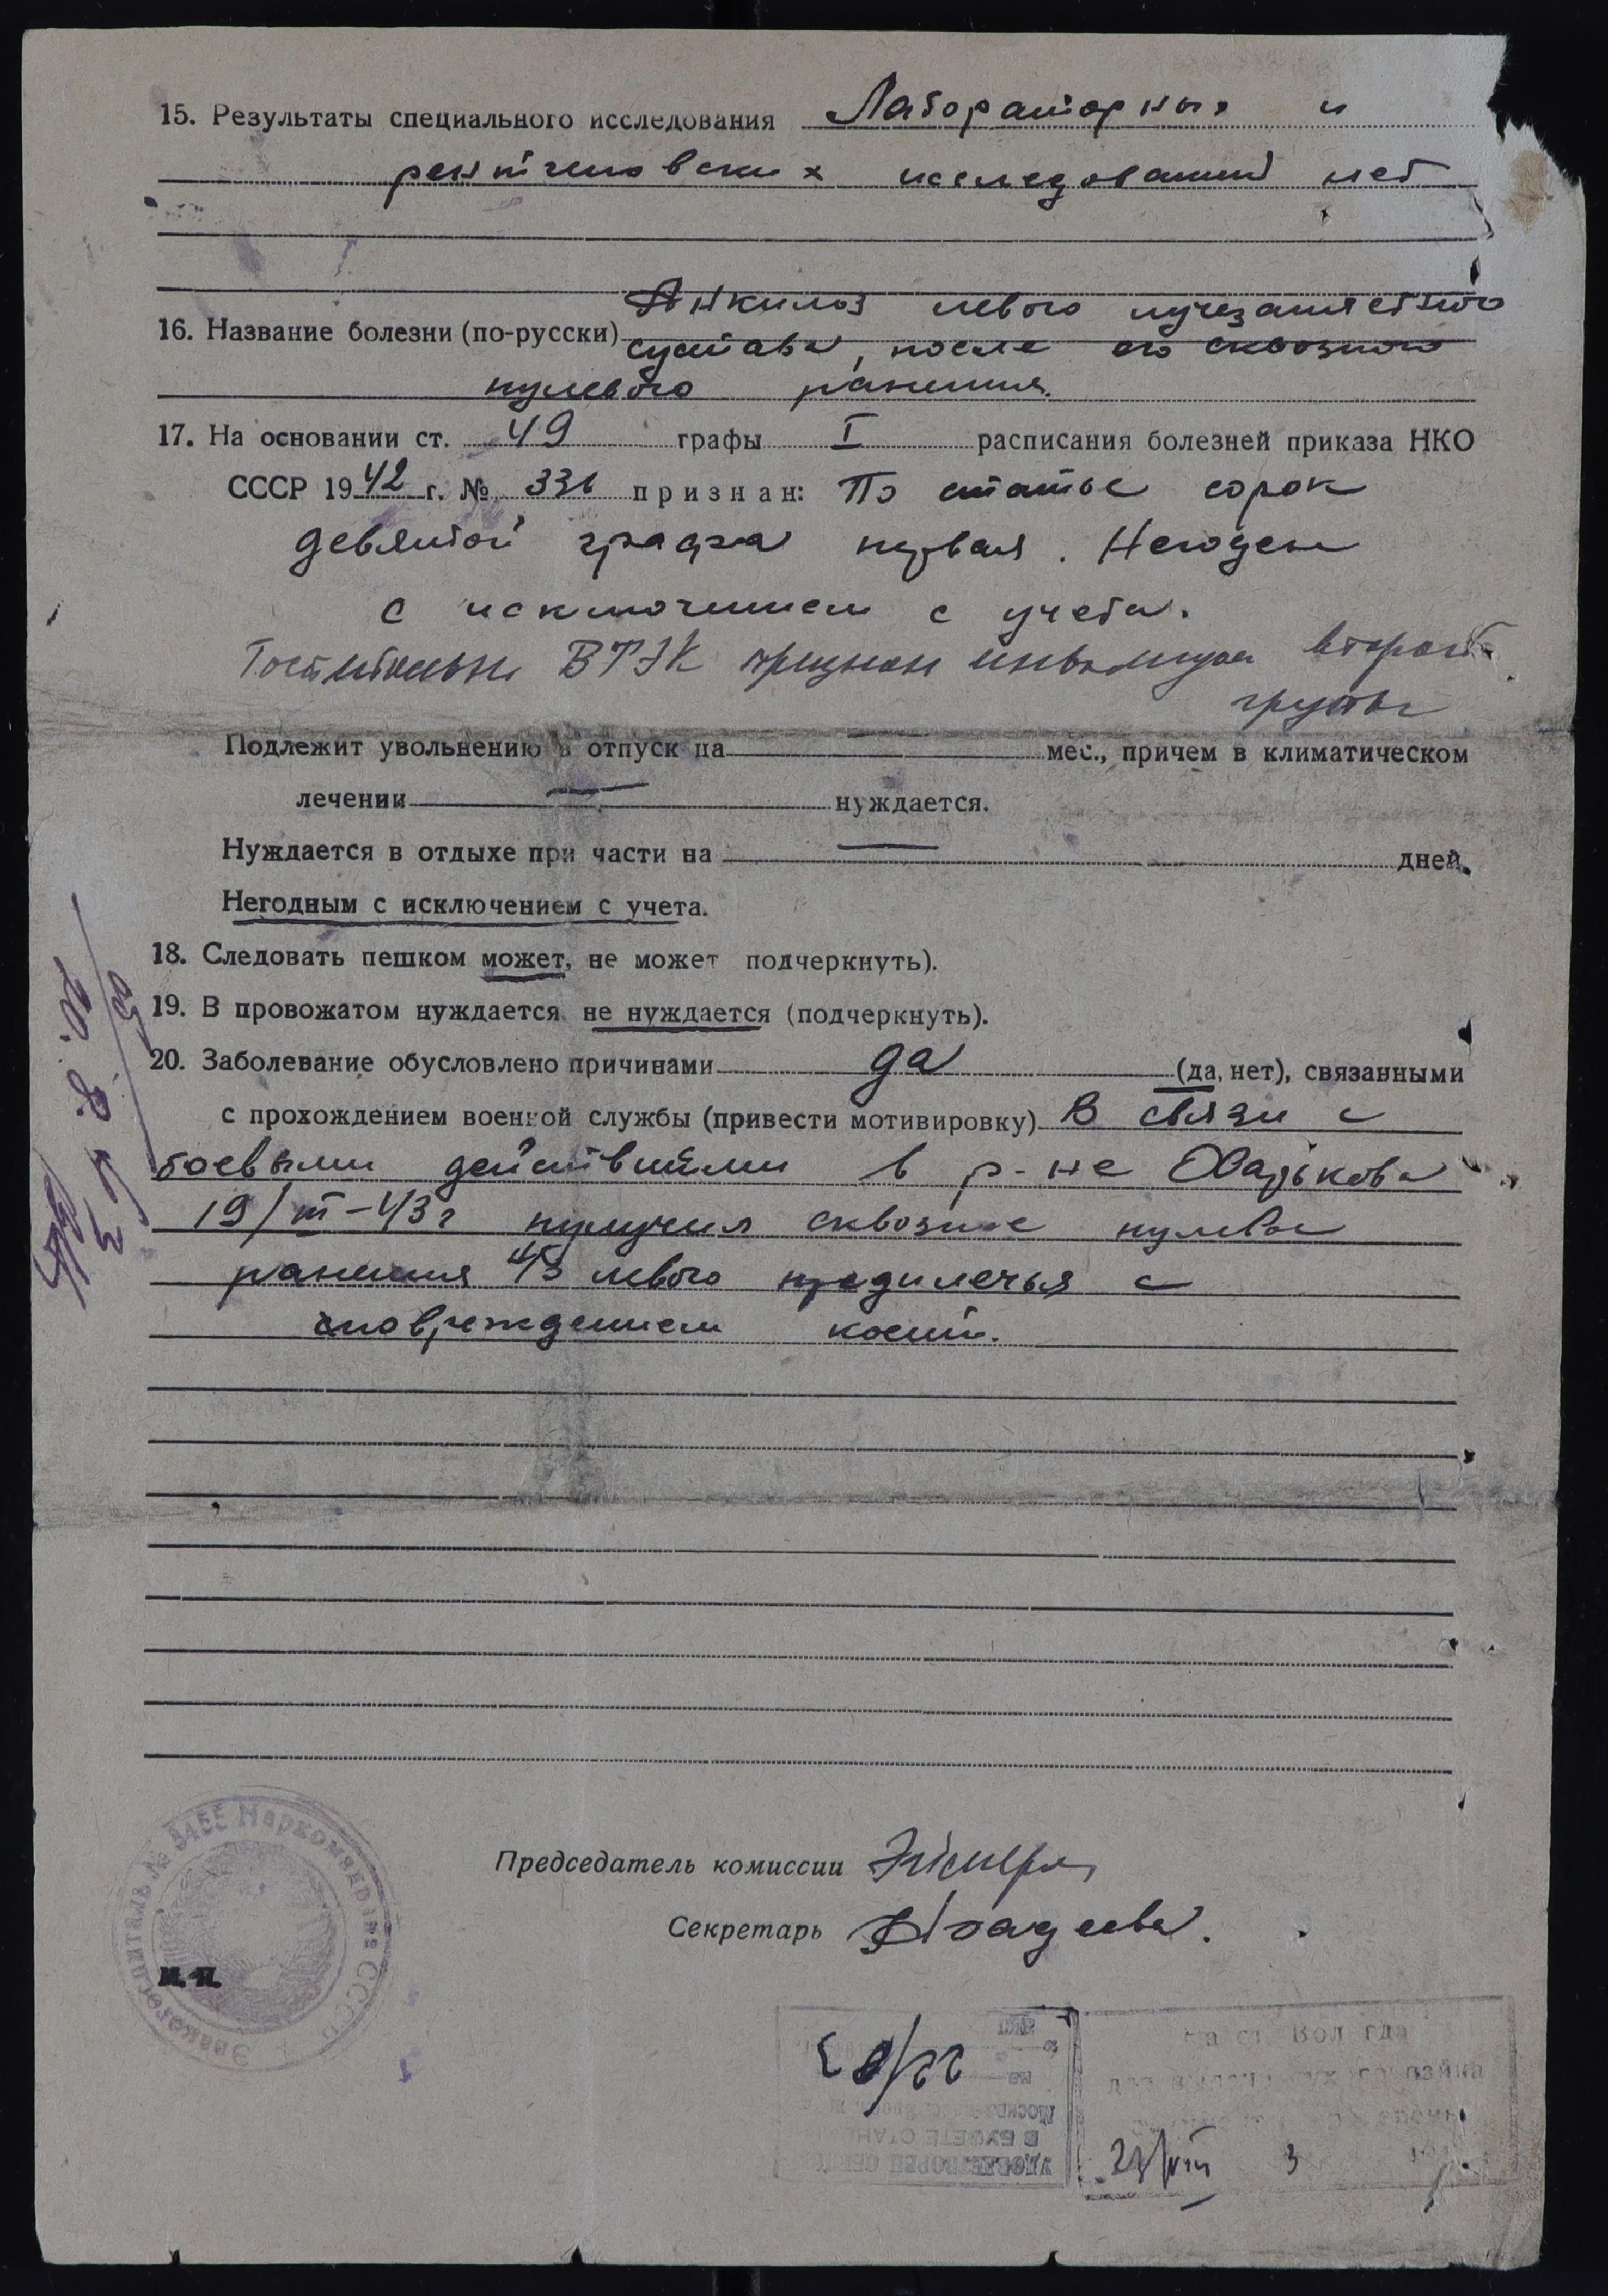 15. Результаты специального исследования Лабораторных и
рентгеновских исследований нет
16. Название болезни (по-русски) Анкилоз левого лучезапястного
сустава, после его сквозного
пулевого ранения.
17. На основании ст. 49 графы I расписания болезней приказа НКО
СССР 1942 г. № 336 признан: По статье сорок
девятой графа первая. Негоден
с исключением с учета.
Госпитальн. ВТЭК признан инвалидом второй
группы
Подлежит увольнению в отпуск на — мес., причем в климатическом
лечении — нуждается.
Нуждается в отдыхе при части на — дней.
Негодным с исключением с учета.
18. Следовать пешком может, не может подчеркнуть).
19. В провожатом нуждается не нуждается (подчеркнуть).
20. Заболевание обусловлено причинами да (да, нет), связанными
с прохождением военной службы (привести мотивировку) В связи с
боевыми действиями в р-не Харькова
19/III-43г получил сквозное пулевое
ранения левого предплечья с
повреждением кости.
Эвакогоспиталь № 5455 Наркомздрава СССР
Председатель комиссии
Секретарь
м. п.
на ст. Вологда